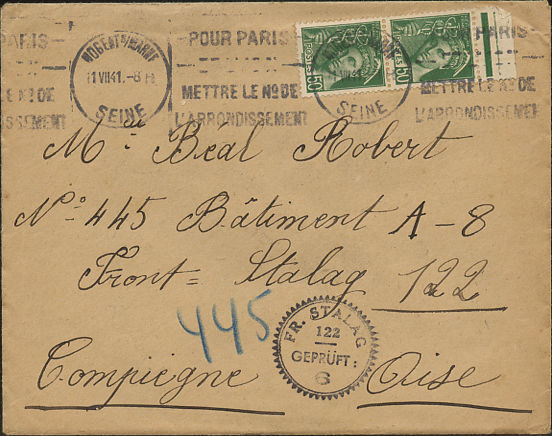 PARIS
LE No DE
DISSEMENT
NOGENT S/MARNE
11 VII 41. -8 H
SEINE
POUR PARIS
METTRE LE No DE
L'ARRONDISSEMENT
POSTES
50
50
SEINE
PARIS
METTRE LE No DE
L'ARRONDISSEMEN
Mr Béal Robert
No 445 Bâtiment A-8
Front = Stalag 122
445
FR. STALAG
122
GEPRÜFT:
6
Compiègne Oise